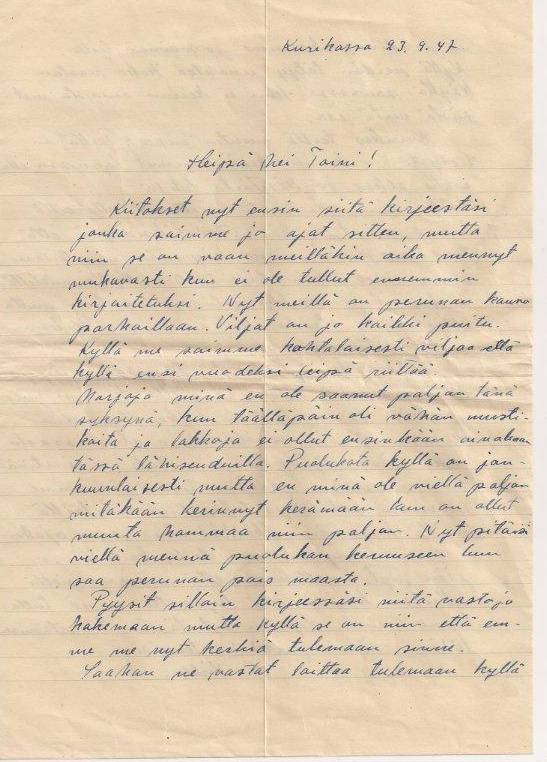 Kurikassa 23.9.47
Heipä hei Toini!
Kiitokset nyt ensin siitä kirjeestäsi
jonka saimme jo ajat sitten, mutta
niin se on vaan meilläkin aika mennyt
mukavasti kun ei ole tullut ennemmin
kirjoitetuksi. Nyt meillä on perunan kaivo
parhaillaan. Viljat on jo kaikki puitu.
Kyllä me saimme kohtalaisesti viljaa että
kyllä ensi vuodeksi leipä riittää.
Marjoja minä en ole saanut paljon tänä
syksynä, kun täälläpäin oli vähän musti-
koita ja lakkoja ei ollut ensinkään ainakaan
tässä lähiseduilla. Puolukota kyllä on jon-
kuunlaisesti mutta en minä ole viellä paljon
niitäkään kerinnyt keräämään kun on ollut
muuta hommaa niin paljon. Nyt pitäisi
viellä mennä puolukan kerruuseen kun
saa perunan pois maasta.
Pyysit silloin kirjeessäsi niitä vastoja
hakemaan mutta kyllä se on niin että em-
me me nyt kerkiä tulemaan sinne.
Saahan ne vastat laittaa tulemaan kyllä